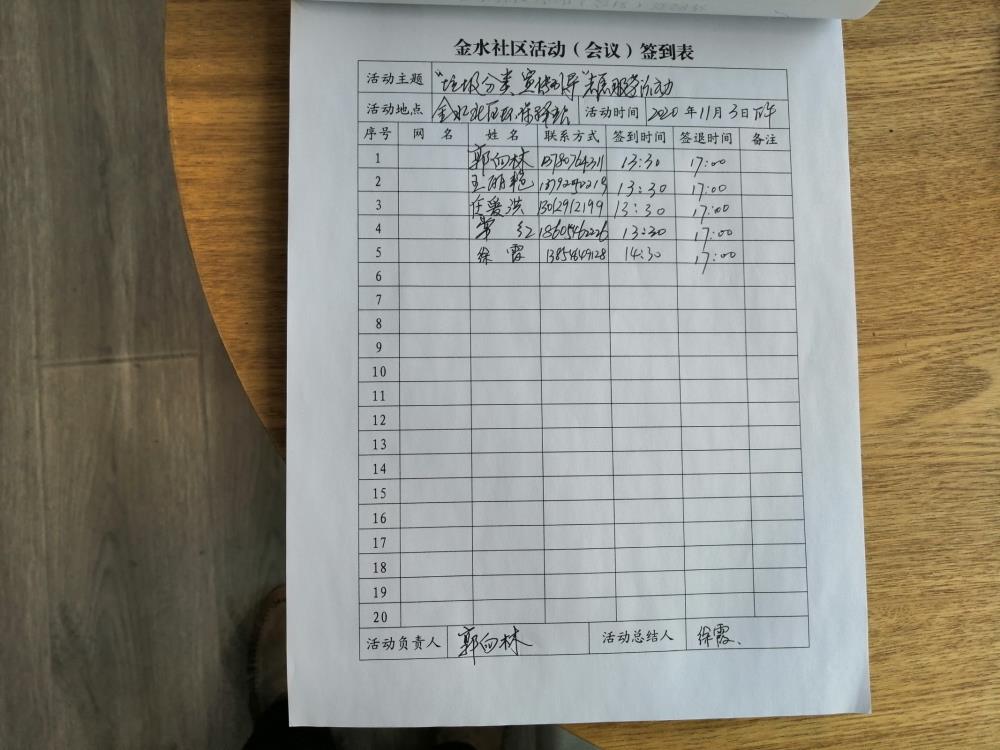 金水社区活动（会议）签到表
活动主题 "垃圾分类宣传引导"志愿服务活动
活动地点 金水北区环保驿站 活动时间 2020年11月3日下午
序号 网名 姓名 联系方式 签到时间 签退时间 备注
1 郭向林 13:30 17:00
2 王丽艳 13:30 17:00
3 任爱洪 13012912199 13:30 17:00
4 红 18605462226 13:30 17:00
5 徐霞 13854649128 14:30 17:00
6
7
8
9
10
11
12
13
14
15
16
17
18
19
20
活动负责人 郭向林 活动总结人 徐霞、